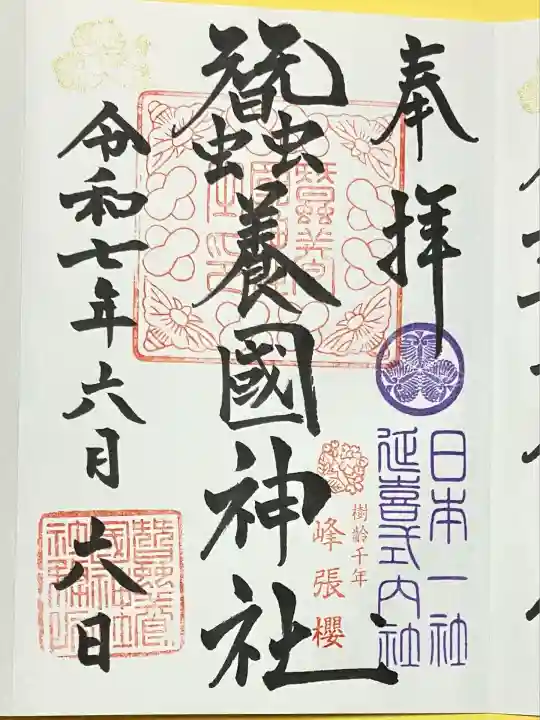 奉拝
日本一社
延喜式内社
樹齢千年
峰張櫻
蠶養國神社
令和七年六月六日